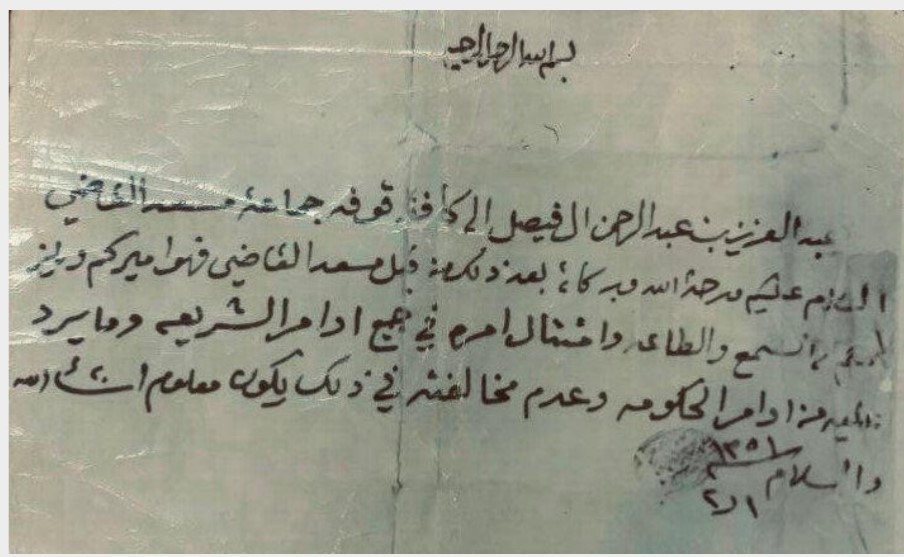 بسم الله الرحمن الرحيم
عبد العزيز بن عبد الرحمن ال فيصل الى كافة قوفه جماعة مسعد القاضي
السلام عليكم ورحمة الله وبركاته بعد ذلك من قبل مسعد القاضي فهو اميركم
السمع والطاعه وامتثال امره في جميع اوامر الشريعه وما يرد
اليه من اوامر الحكومه وعدم مخالفته في ذلك يكون معلوم ان شاء الله
والسلام
١٣٥١